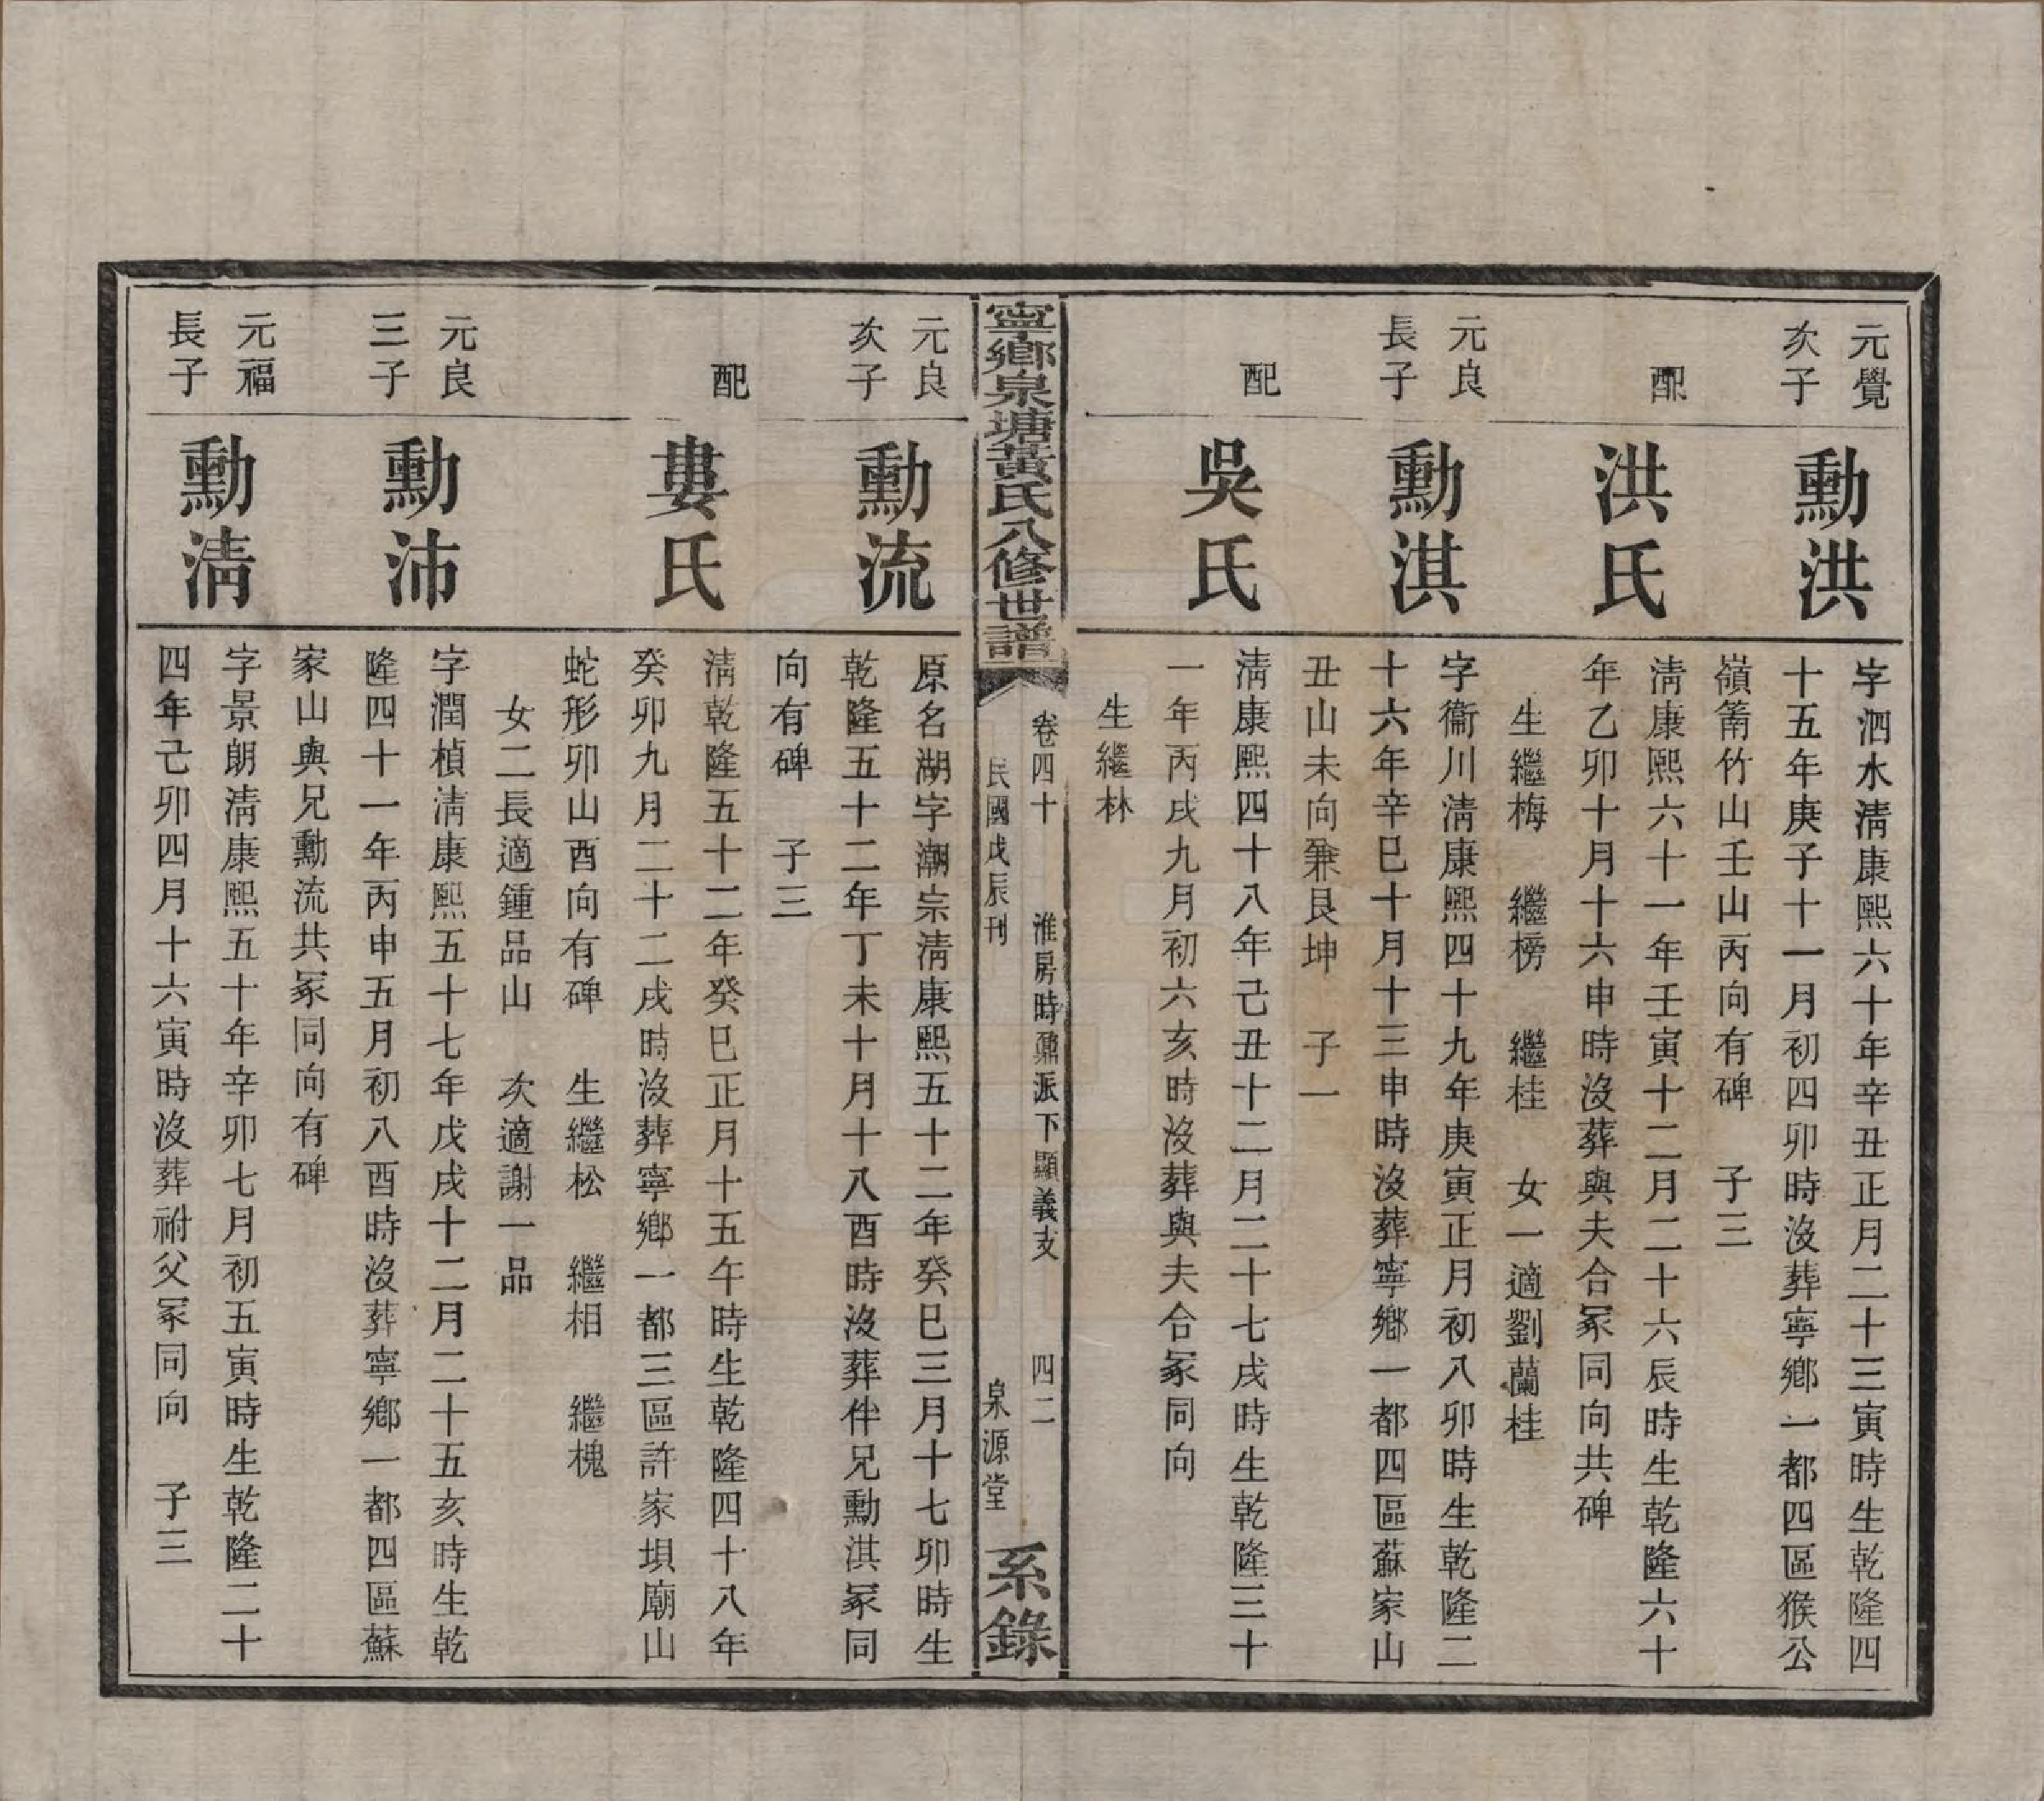 元覺
次子
勳洪
字泗水淸康熙六十年辛丑正月二十三寅時生乾隆四
十五年庚子十一月初四卯時沒葬寧鄉一都四區猴公
嶺筩竹山壬山丙向有碑　子三
配
洪氏
淸康熙六十一年壬寅十二月二十六辰時生乾隆六十
年乙卯十月十六申時沒葬與夫合冢同向共碑
生繼梅　繼榜　繼桂　女一適劉蘭桂
元良
長子
勳淇
字衞川淸康熙四十九年庚寅正月初八卯時生乾隆二
十六年辛巳十月十三申時沒葬寧鄉一都四區蘇家山
丑山未向兼艮坤　子一
配
吳氏
淸康熙四十八年己丑十二月二十七戌時生乾隆三十
一年丙戌九月初六亥時沒葬與夫合冢同向
生繼林
寧鄉泉塘黃氏八修世譜
卷四十　淮房時鼐派下顯義支　四二
民國戊辰刊　泉源堂
系錄
元良
次子
勳流
原名湖字潮宗淸康熙五十二年癸巳三月十七卯時生
乾隆五十二年丁未十月十八酉時沒葬伴兄勳淇冢同
向有碑　子三
配
婁氏
淸乾隆五十二年癸巳正月十五午時生乾隆四十八年
癸卯九月二十二戌時沒葬寧鄉一都三區許家垻廟山
蛇形卯山酉向有碑　生繼松　繼相　繼槐
女二長適鍾品山　次適謝一品
元良
三子
勳沛
字潤楨淸康熙五十七年戊戌十二月二十五亥時生乾
隆四十一年丙申五月初八酉時沒葬寧鄉一都四區蘇
家山與兄勳流共冢同向有碑
元福
長子
勳淸
字景朗淸康熙五十年辛卯七月初五寅時生乾隆二十
四年己卯四月十六寅時沒葬祔父冢同向　子三